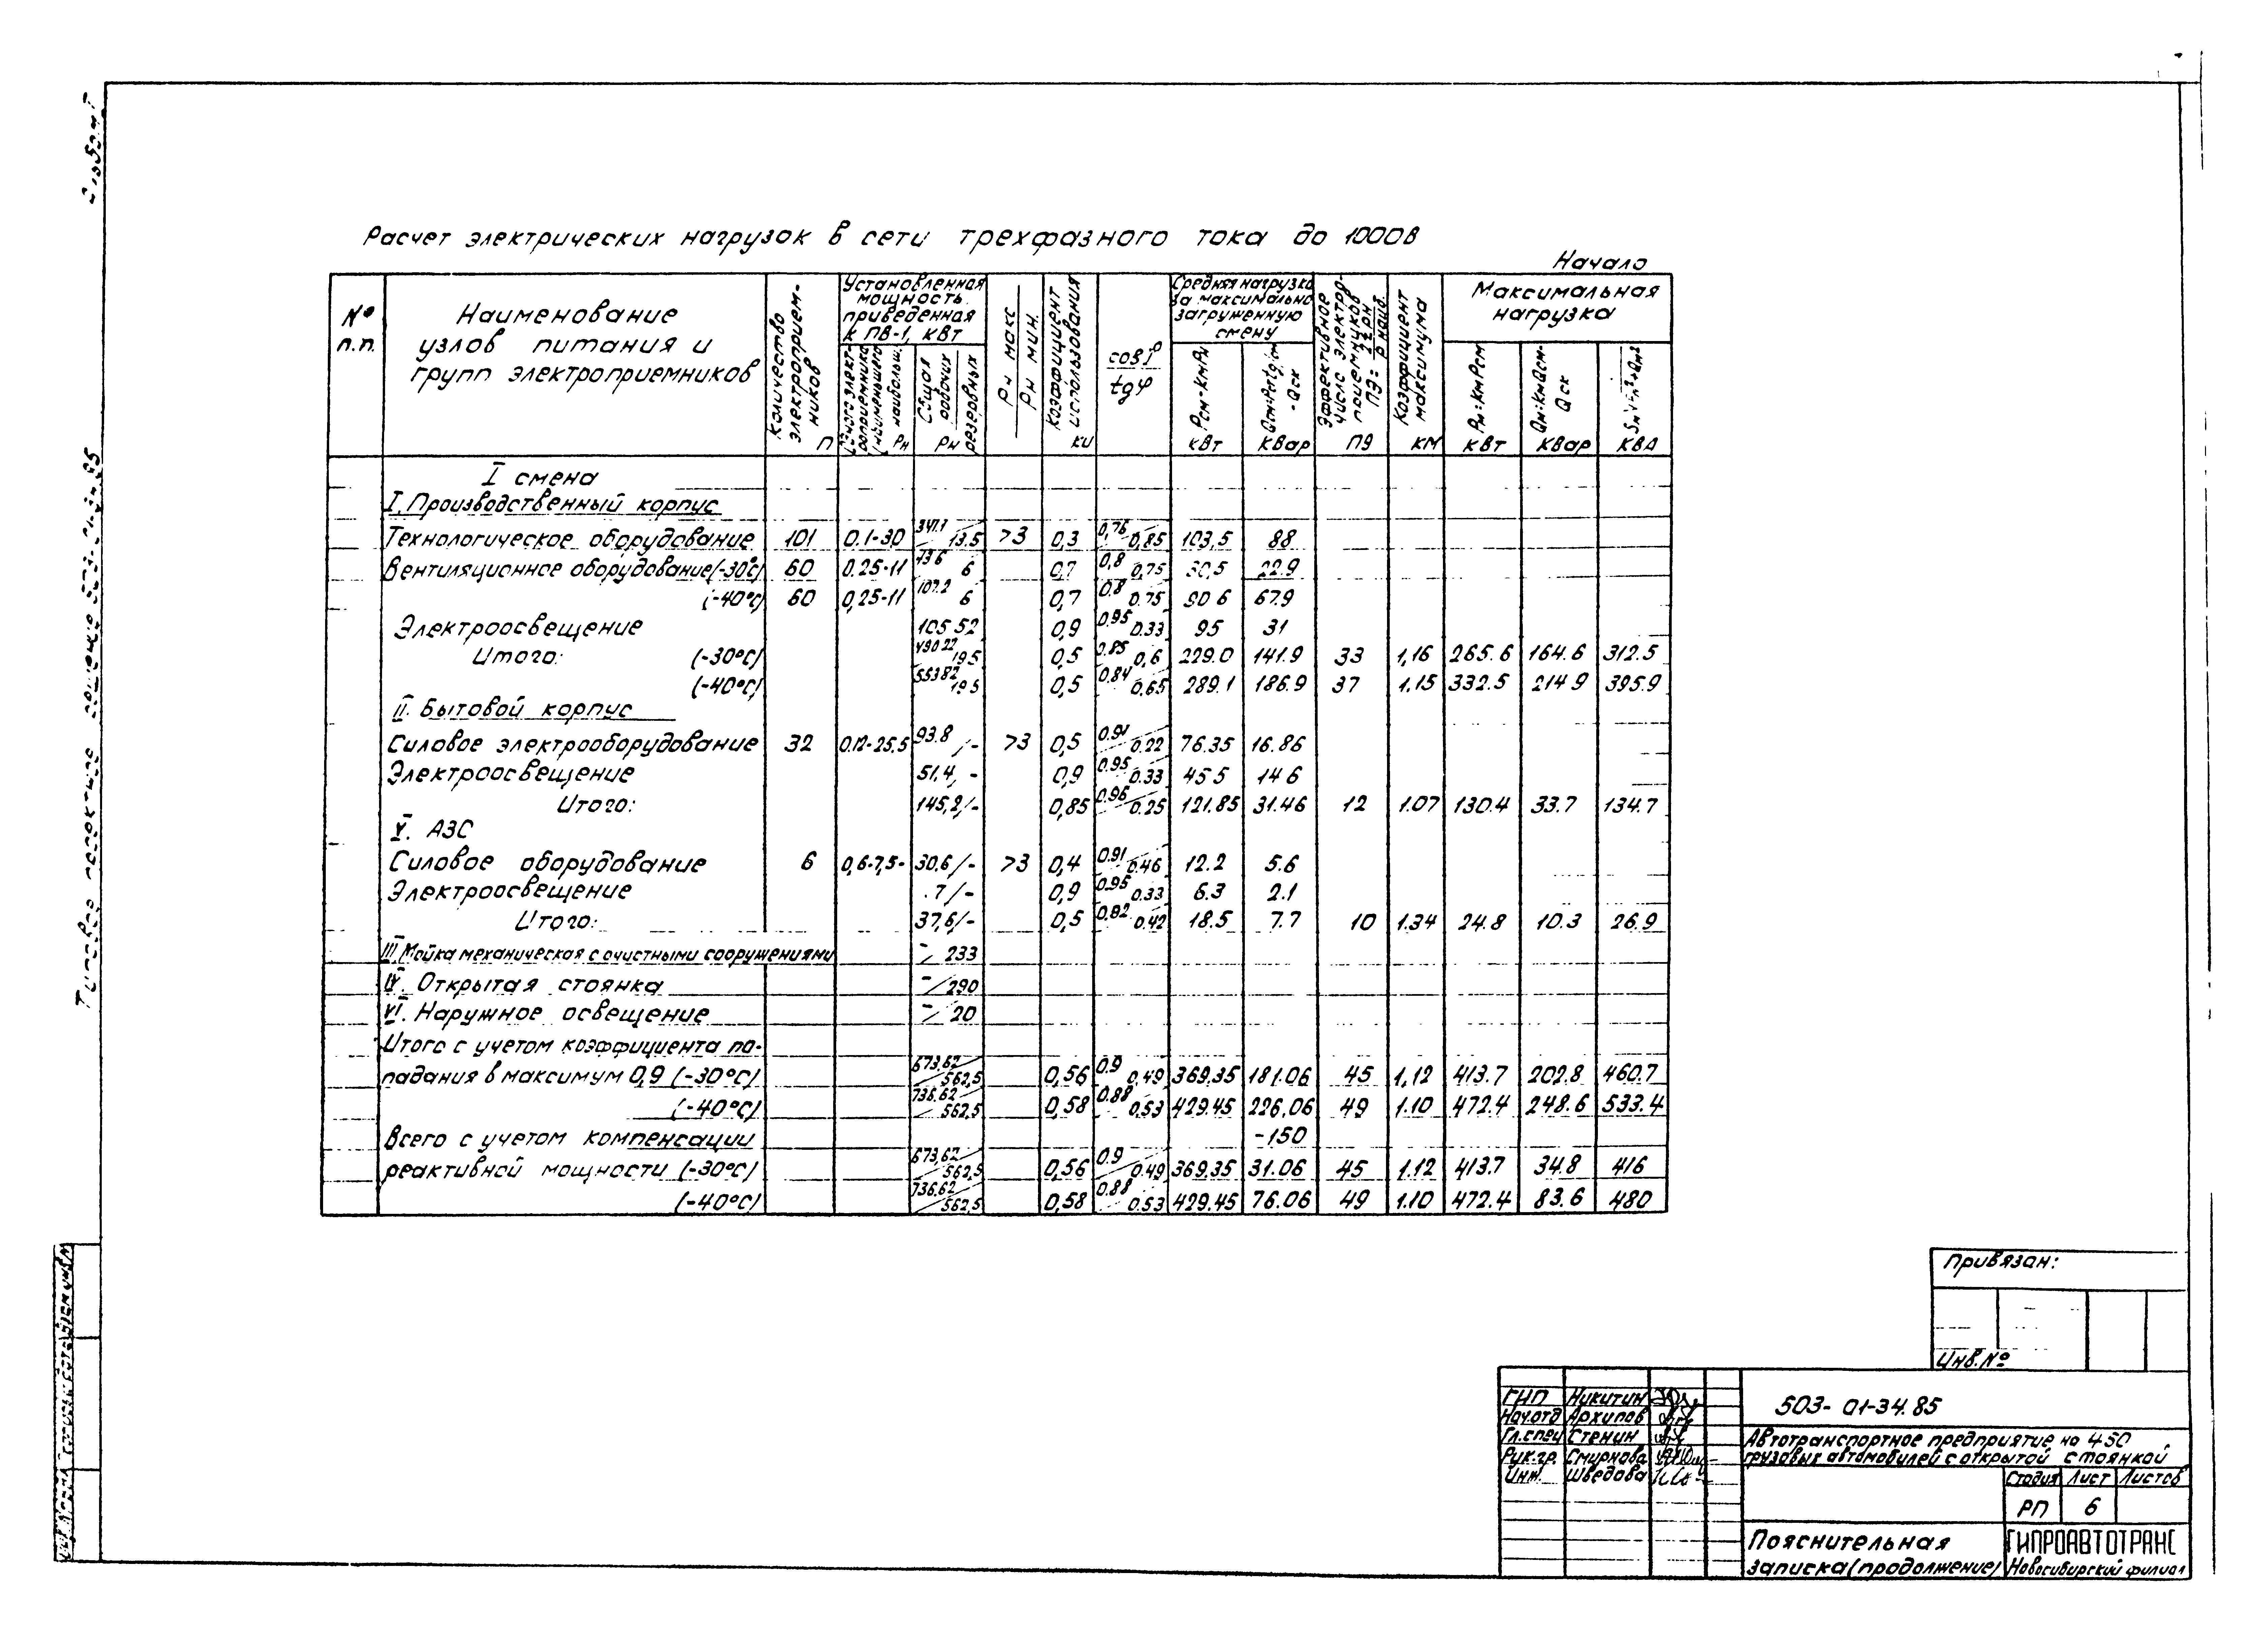 Расчет электрических нагрузок в сети трехфазного тока до 1000в
Начало
№ п.п.
Наименование узлов питания и групп электроприемников
Количество электроприемников п
Установленная мощность приведенная к ПВ-1, кВт
наибольш. Рн
Общая рабочих резервных Рн
Рн макс / Рн мин.
Коэффициент использования ки
cosφ / tgφ
Средняя нагрузка за максимально загруженную смену
кВт
квар
Эффективное число электроприемников пэ
Коэффициент максимума км
Максимальная нагрузка
Рм=КмРсм кВт
квар
ква
I смена
I. Производственный корпус
Технологическое оборудование 101 0.1-30 341.1/13.5 >3 0,3 0,76/0,85 103,5 88
Вентиляционное оборудование (-30°С) 60 0.25-11 43 6 6 0,7 0,8 0,75 30,5 22.9
(-40°С) 60 0,25-11 107.2 6 0,7 0.8 0.75 90 6 67.9
Электроосвещение 105 52 0,9 0.95 0.33 95 31
Итого: (-30°С) 490 22 19.5 0,5 0.85 0,6 229.0 141.9 33 1,16 265.6 164.6 312.5
(-40°С) 553 82 19 5 0,5 0,84 0,65 289.1 186.9 37 1.15 332.5 214 9 395.9
II. Бытовой корпус
Силовое электрооборудование 32 0.12-25.5 93.8 /- >3 0,5 0.91 0.22 76.35 16.86
Электроосвещение 51,4, - 0,9 0.95 0.33 45 5 14 6
Итого: 145,2/- 0,85 0.96 0.25 121.85 31.46 12 1.07 130.4 33.7 134.7
V. АЗС
Силовое оборудование 6 0,6-7,5- 30.6/- >3 0,4 0.91 0.46 12.2 5.6
Электроосвещение 7/- 0,9 0.95 0.33 6.3 2.1
Итого: 37,6/- 0,5 0,82 0.42 18.5 7.7 10 1.34 24.8 10.3 26.9
III. Мойка механическая с очистными сооружениями -/233
IV. Открытая стоянка -/290
VI. Наружное освещение -/20
Итого с учетом коэффициента по-
падания в максимум 0,9 (-30°С) 673,62/562,5 0,56 0.9 0,49 369,35 181.06 45 1,12 413.7 202.8 460.7
(-40°С) 736.62/562,5 0,58 0.88 0,53 429.45 226,06 49 1.10 472.4 248.6 533.4
Всего с учетом компенсации -150
реактивной мощности (-30°С) 673,62/562,5 0,56 0.9 0.49 369,35 31.06 45 1.12 413.7 34.8 416
(-40°С) 736.62/562,5 0,58 0.88 0.53 429.45 76.06 49 1.10 472.4 83.6 480
Привязан:
Инв.№
ГИП Никитин
Нач.отд Архипов
Гл.спец Стенин
Рук.гр. Смирнова
Инж. Шведова
503-01-34.85
Автотранспортное предприятие на 450
грузовых автомобилей с открытой стоянкой
Стадия Лист Листов
РП 6
Пояснительная
записка (продолжение)
ГИПРОАВТОТРАНС
Новосибирский филиал